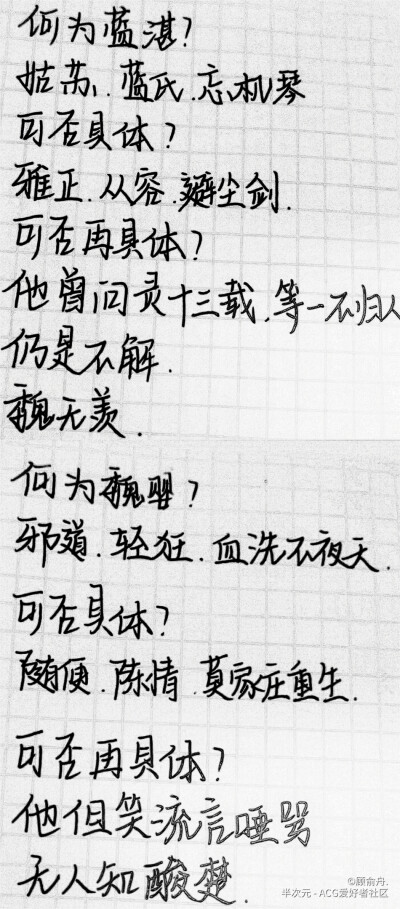 何为蓝湛?
姑苏、蓝氏.忘机琴
可否具体?
雅正.从容.避尘剑.
可否再具体?
他曾问灵十三载.等一不归人
仍是不解.
魏无羡.
何为魏婴?
邪道.轻狂.血洗不夜天.
可否具体?
随便.陈情.莫家庄重生.
可否再具体?
他但笑流言唾骂
无人知酸楚.
©顾俞丹.
半次元 - ACG爱好者社区